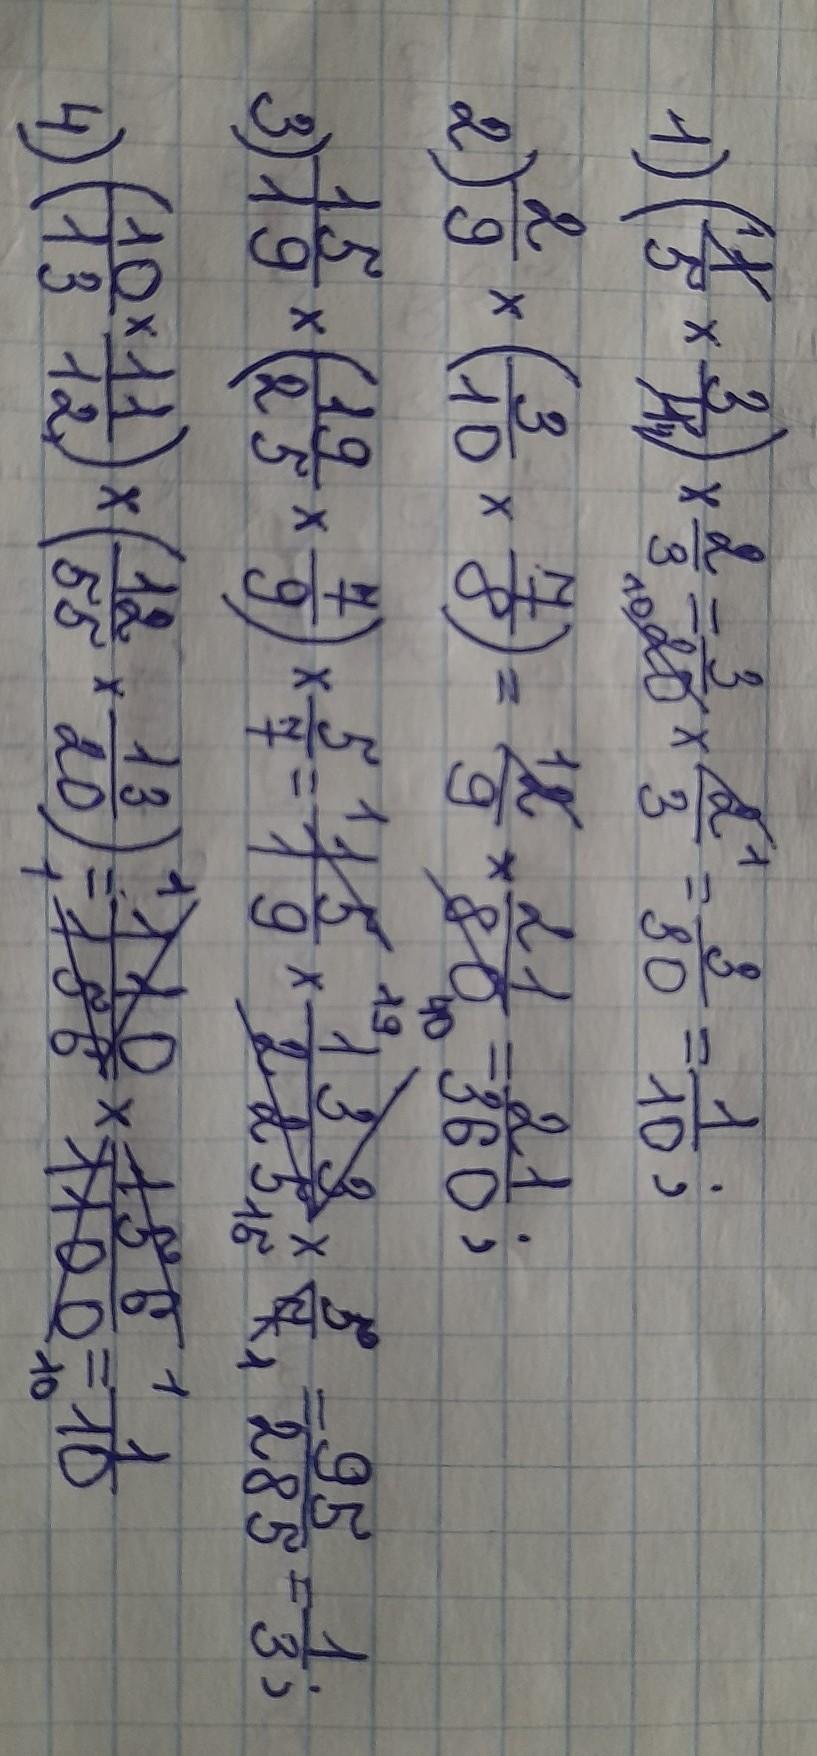 1) (1/5 × 3/4) × 2/3 = 3/20 × 2/3 = 3/30 = 1/10;
2) 2/9 × (3/10 × 7/8) = 2/9 × 21/80 = 21/360;
3) 15/19 × (19/25 × 7/9) × 5/7 = 15/19 × 133/225 × 5/7 = 95/285 = 1/3;
4) (10/13 × 11/12) × (12/55 × 13/20) = 110/156 × 156/1100 = 1/10